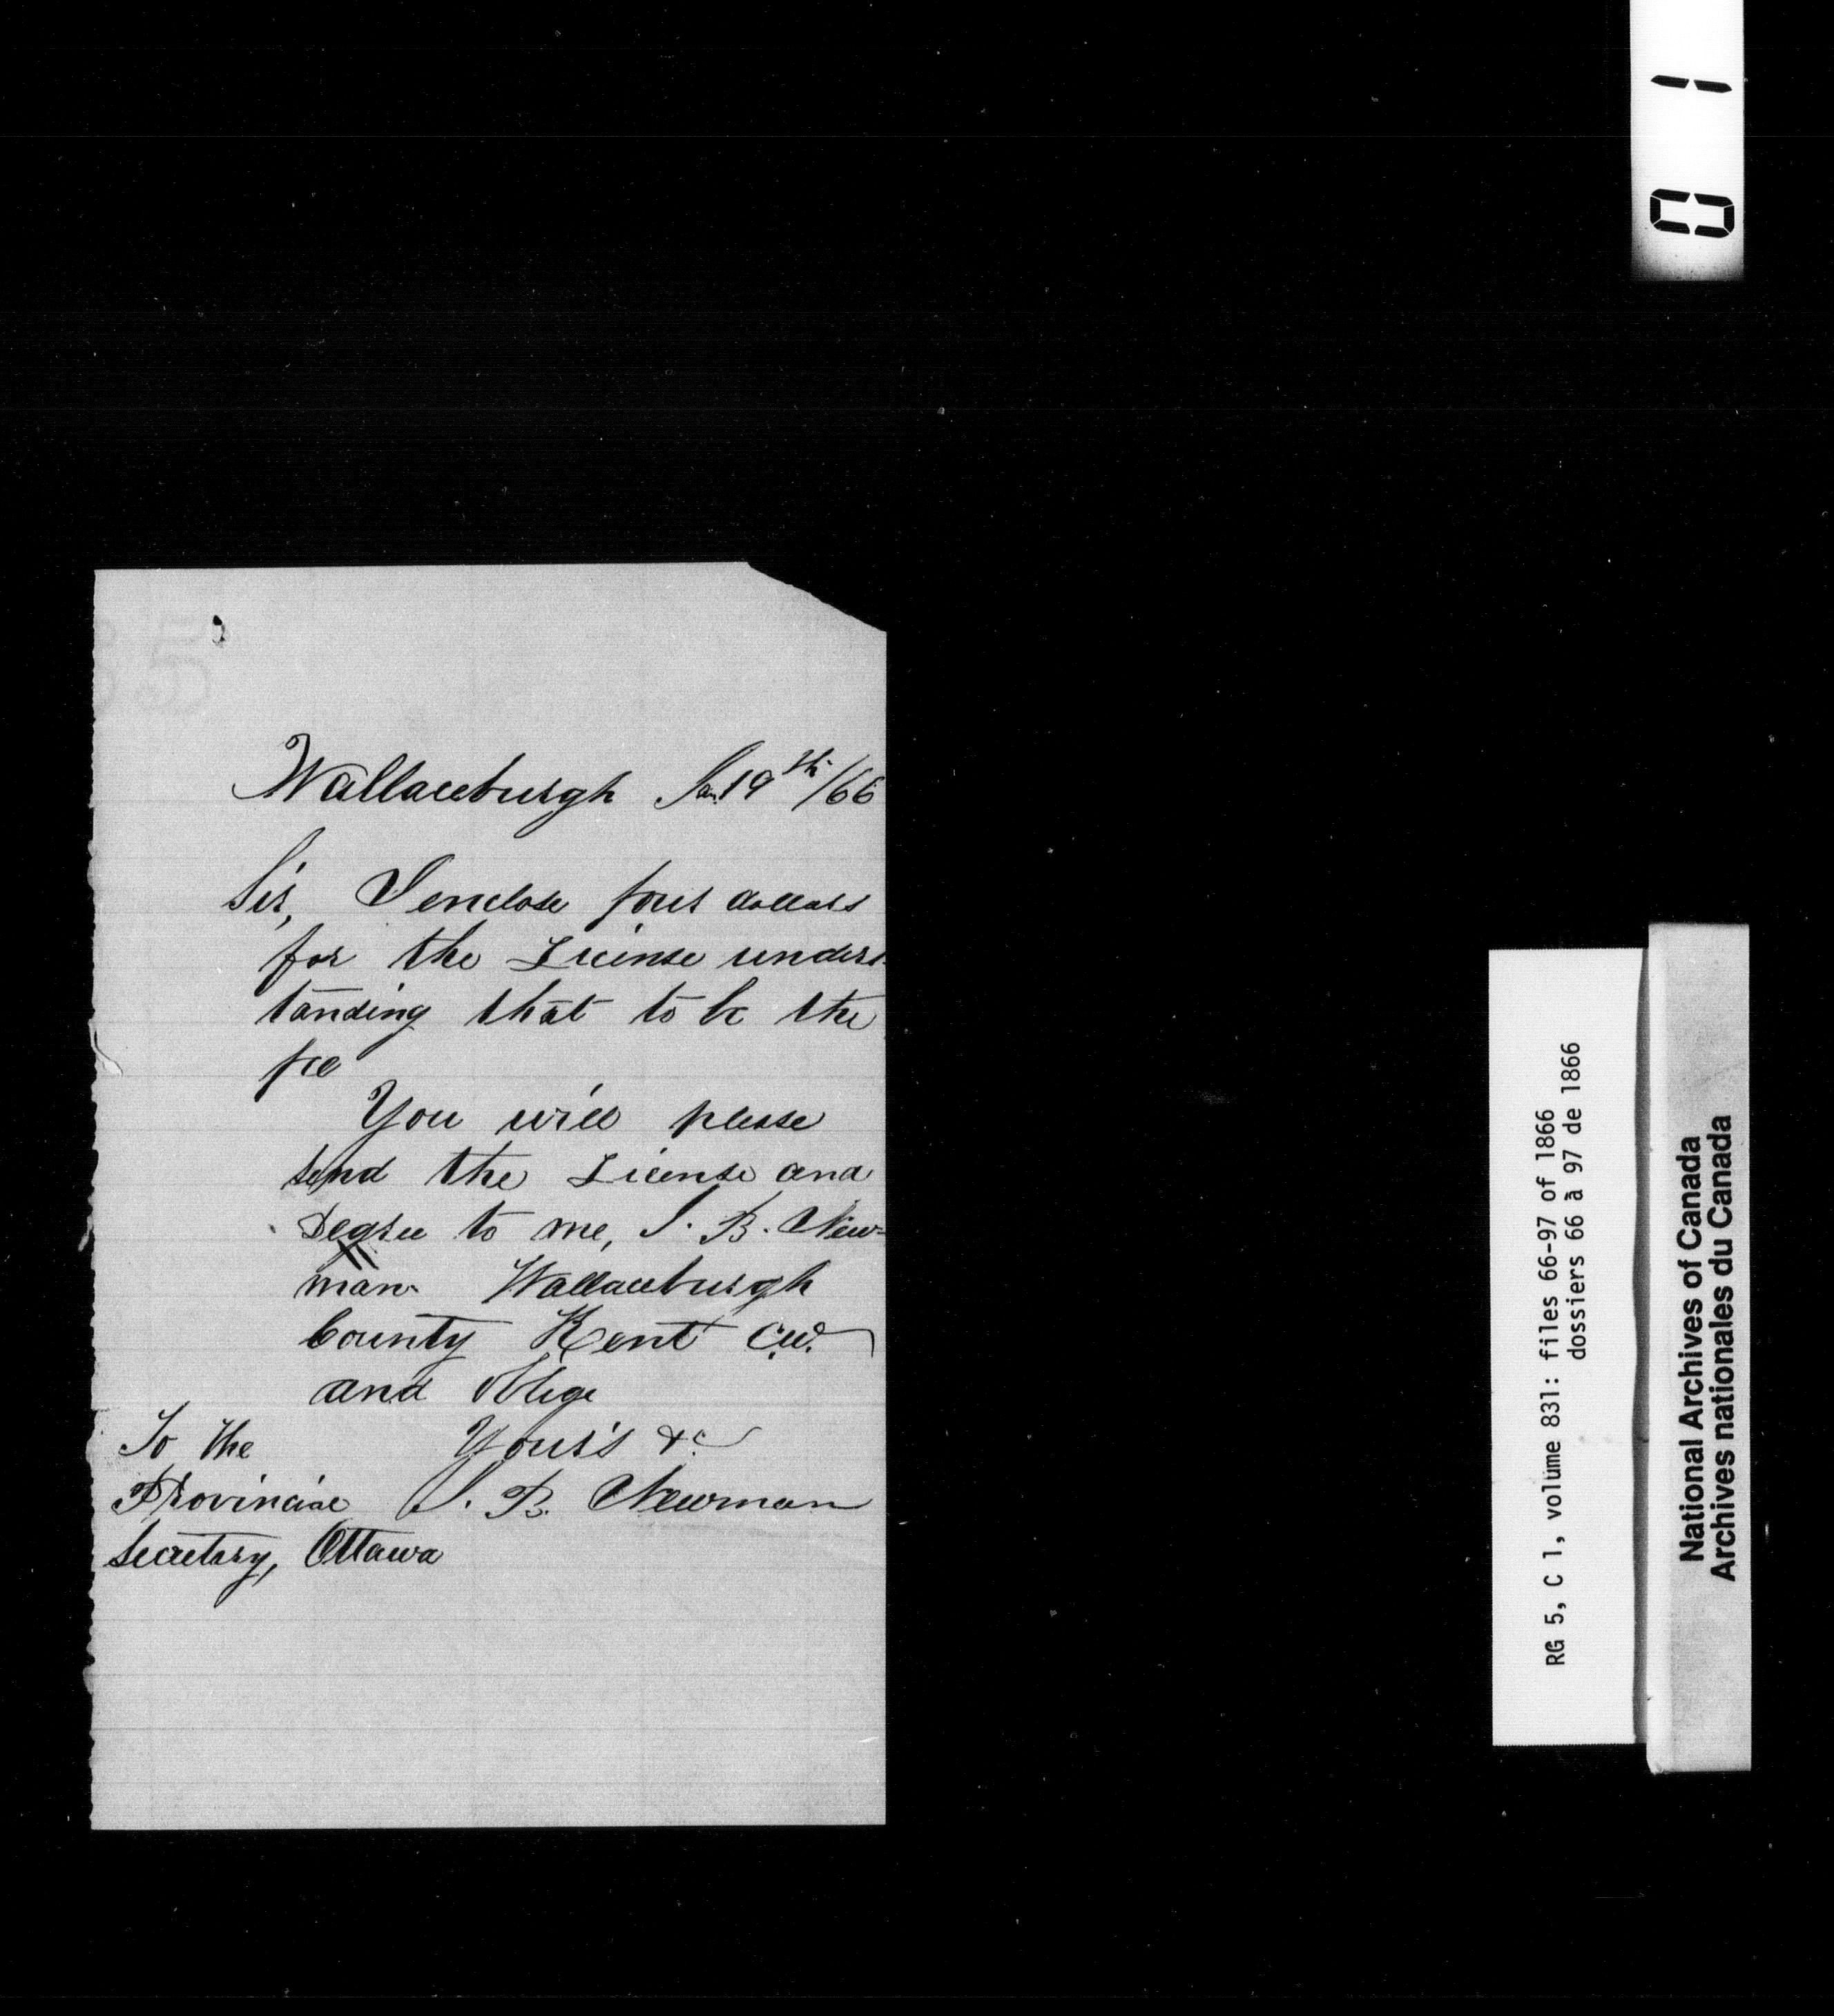 Wallaceburgh Jan. 19th/66
Sir, I enclose four dollars
for the License unders-
tanding that to be the
fee
You will please
send the License and
Degree to me, J. B. New-
man Wallaceburgh
County Kent C.W.
and oblige
To the Your's &c
Provincial J. B. Newman
Secretary, Ottawa
01
RG 5, C 1, volume 831: files 66-97 of 1866
dossiers 66 à 97 de 1866
National Archives of Canada
Archives nationales du Canada